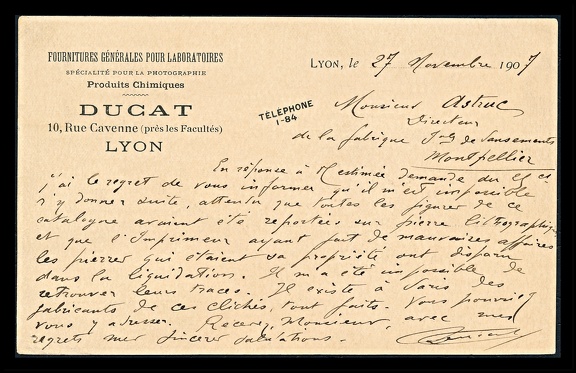 FOURNITURES GÉNÉRALES POUR LABORATOIRES
SPÉCIALITÉ POUR LA PHOTOGRAPHIE
Produits Chimiques
DUCAT
10, Rue Cavenne (près les Facultés)
LYON
TÉLÉPHONE
1-84
LYON, le 27 Novembre 1907
Monsieur Astruc
Directeur
de la fabrique de Pansements
Montpellier
En réponse à estimée demande du
j'ai le regret de vous informer qu'il m'est impossible
d'y donner suite, attendu que toutes les figures de ce
catalogue avaient été reportées sur pierre lithographique
et que l'Imprimeur ayant fait de mauvaises affaires
les pierres qui étaient sa propriété ont disparu
dans la liquidation. Il m'a été impossible de
retrouver leurs traces. Il existe à Paris des
fabricants de ces clichés, tout faits. Vous pourriez
vous y adresser. Recevez, Monsieur, avec mes
regrets mes sincères salutations.